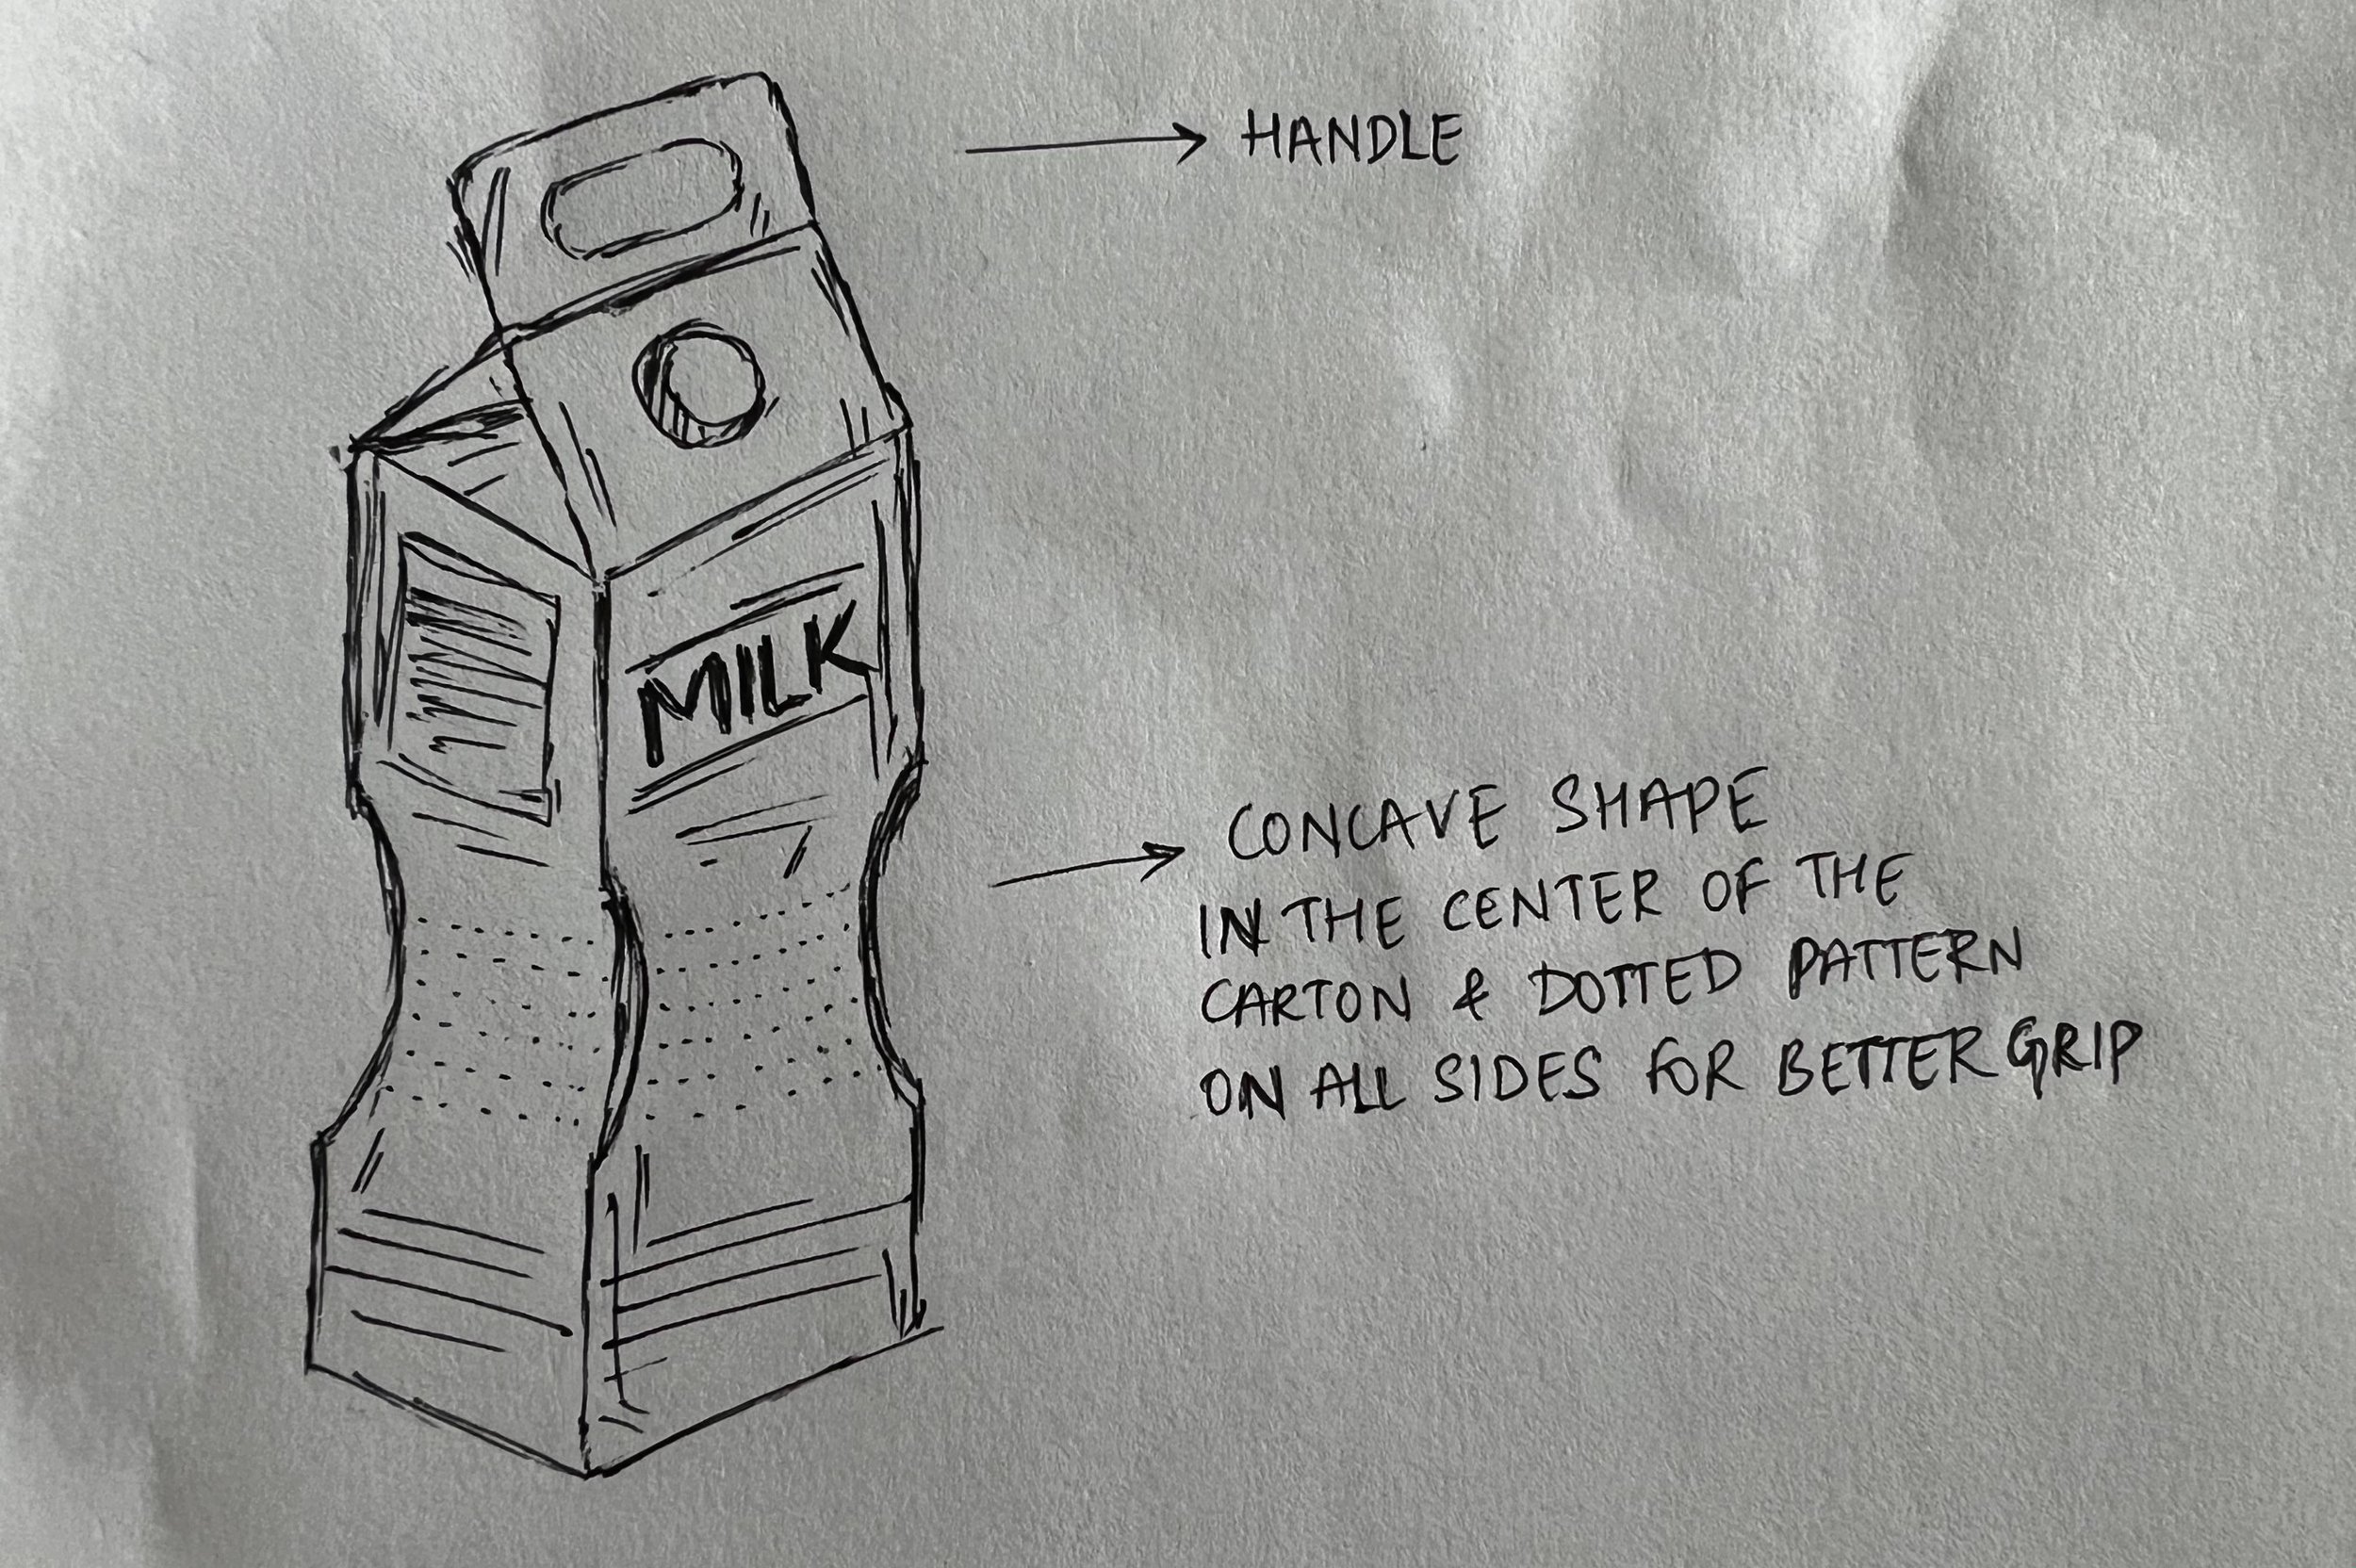 HANDLE
MILK
CONCAVE SHAPE
IN THE CENTER OF THE
CARTON & DOTTED PATTERN
ON ALL SIDES FOR BETTER GRIP